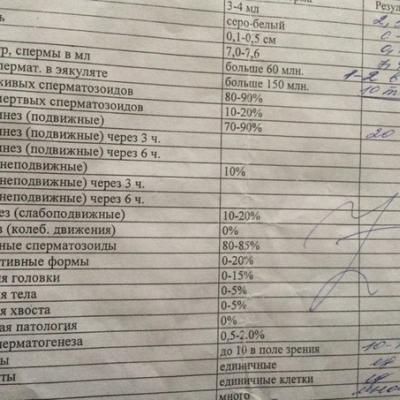 3-4 мл
Резул
серо-белый
0,1-0,5 см
тр, спермы в мл 7,0-7,6
пермат. в эякуляте больше 60 млн. 1-2 в
живых сперматозоидов больше 150 млн.
мертвых сперматозоидов 80-90%
инез (подвижные) 10-20%
инез (подвижные) через 3 ч. 70-90% 20
инез (подвижные) через 6 ч.
неподвижные)
неподвижные) через 3 ч. 10%
неподвижные) через 6 ч.
ез (слабоподвижные) 10-20%
в (колеб. движения) 0%
ные сперматозоиды 80-85%
ативные формы 0-20%
ия головки 0-15%
ия тела 0-5%
ия хвоста 0-5%
ная патология 0%
перматогенеза 0,5-2.0%
ты до 10 в поле зрения
единичные ед
ты единичные клетки
много